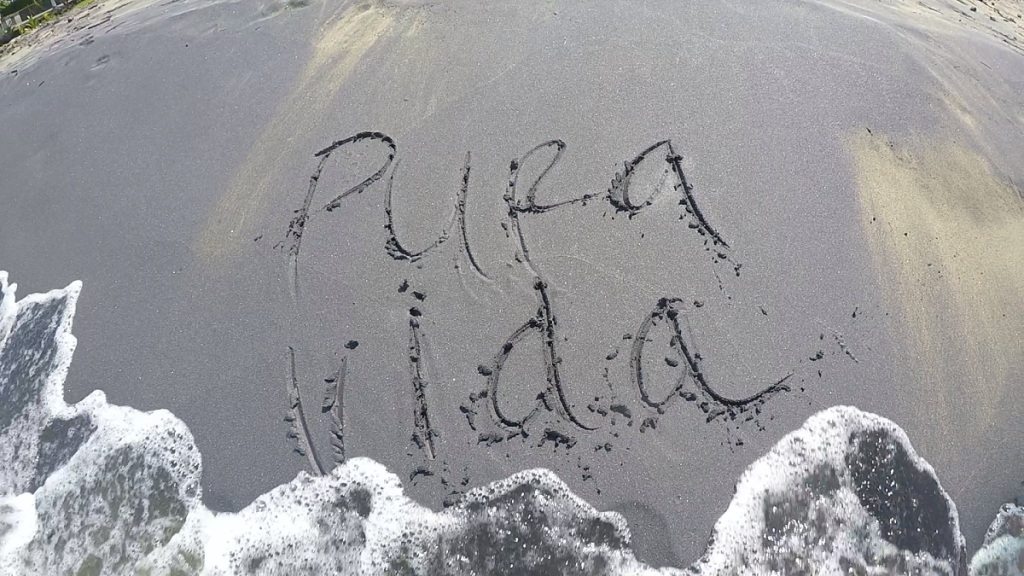 Pura
vida